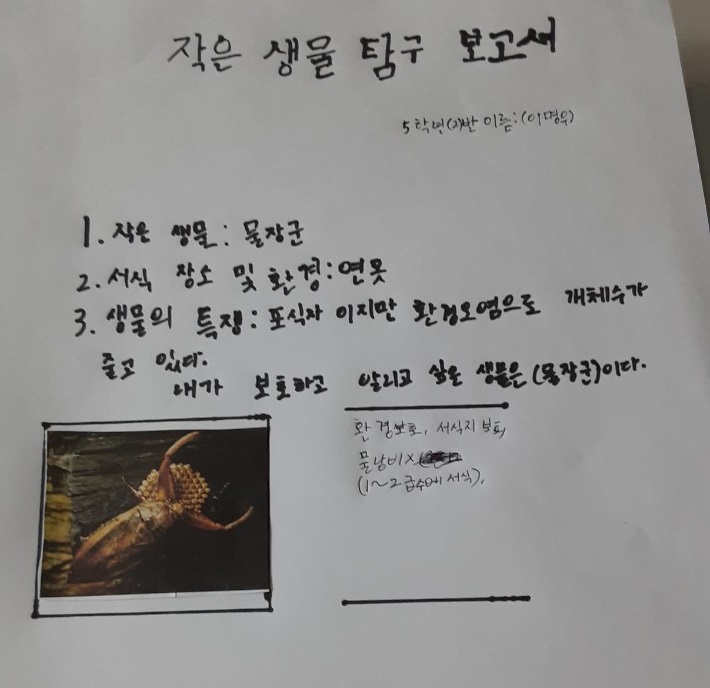 작은 생물 탐구 보고서
5학년(2)반 이름:(이명우)
1. 작은 생물: 물장군
2. 서식 장소 및 환경: 연못
3. 생물의 특징: 포식자 이지만 환경오염으로 개체수가
줄고 있다.
내가 보호하고 알리고 싶은 생물은 (물장군)이다.
환경보호, 서식지
물낭비X
(1~2급수에 서식),